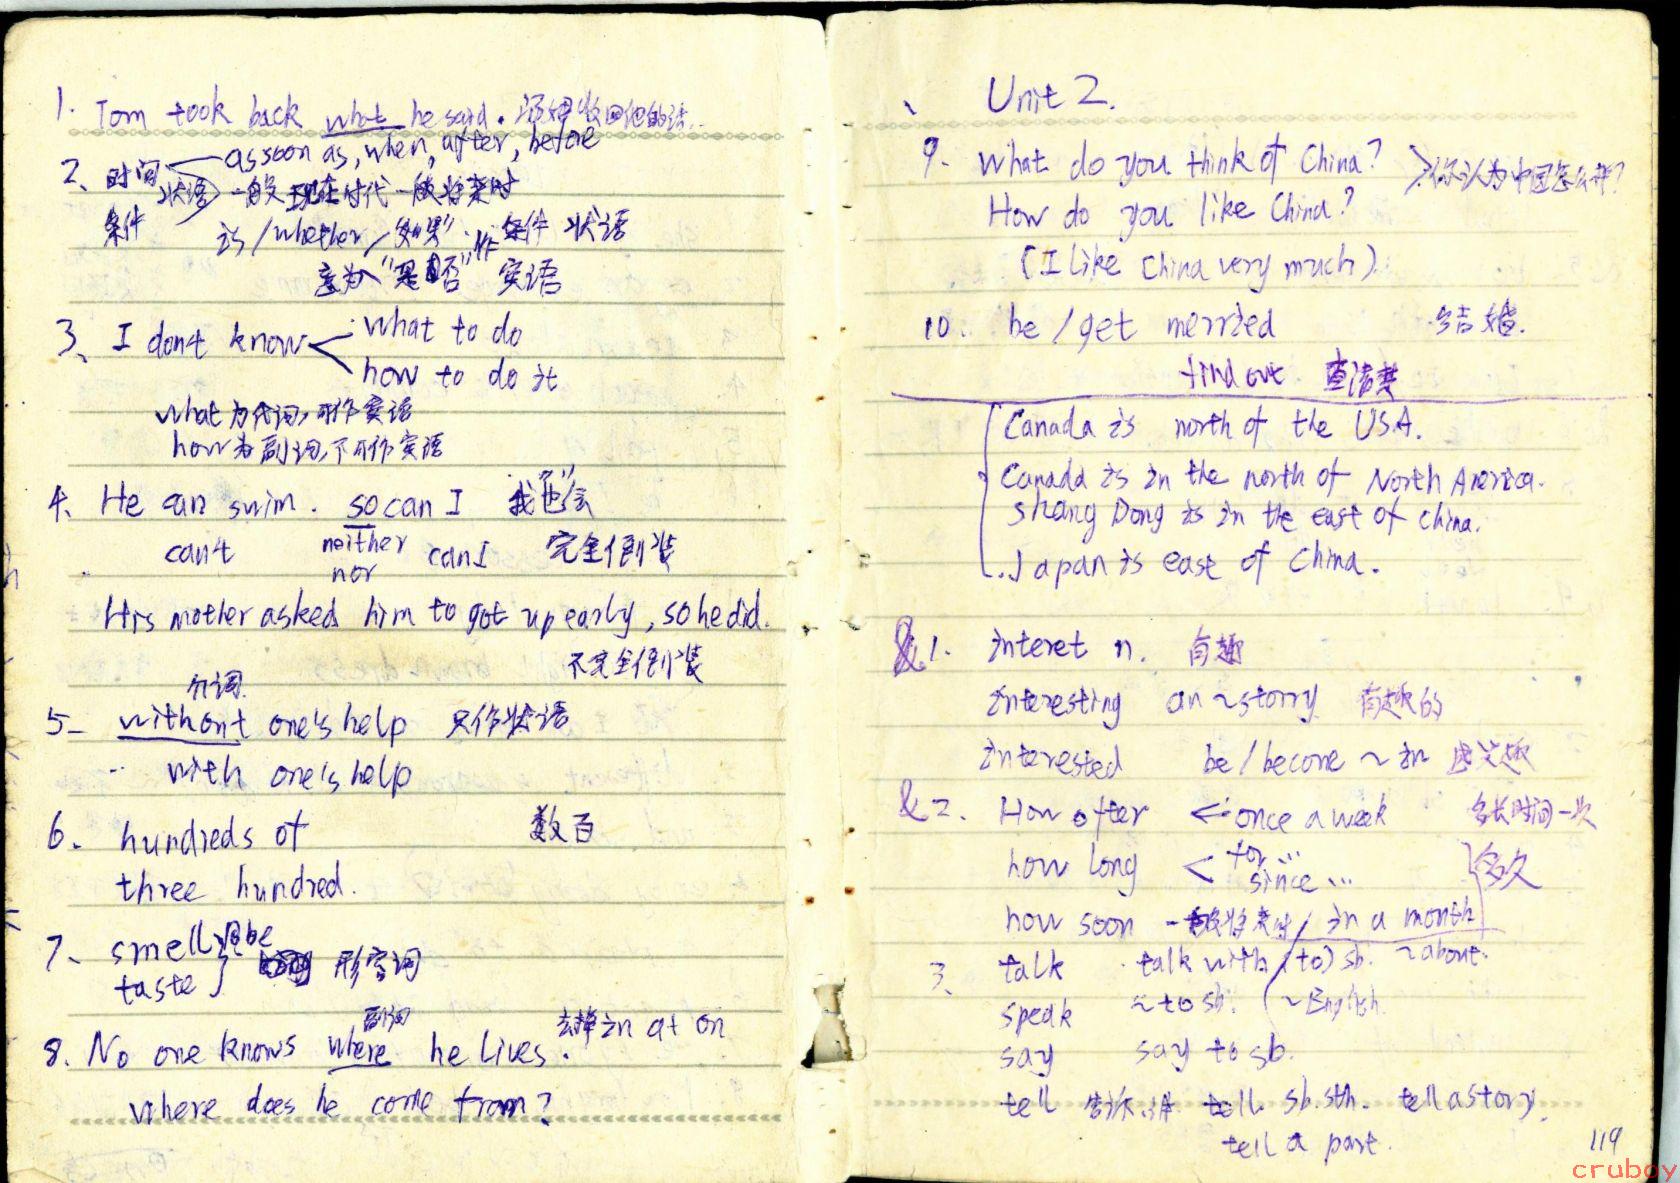 1. Tom took back what he said. 汤姆收回他的话.
2、时间 as soon as, when, after, before
状语 一般现在时代一般将来时
条件 is/whether/"如果" 作 条件 状语
意为"是否" 宾语
3、I don't know what to do
how to do it
what为代词,可作宾语
how为副词,不可作宾语
4. He can swim. so can I 我"也"会
can't neither can I 完全倒装
nor
His mother asked him to got up early, so he did.
不完全倒装
介词
5- without one's help 只作状语
with one's help
6. hundreds of 数百
three hundred.
7、smell be
taste 形容词
副词
8. No one knows where he lives. 去掉 in at on
where does he come from?
Unit 2.
9. What do you think of China? 你认为中国怎么样?
How do you like China?
(I like China very much)
10. be/get merried 结婚.
find out 查清楚
Canada is north of the USA.
Canada is in the north of North America.
Shang Dong is in the east of China.
Japan is east of China.
&1. interet n. 有趣
interesting an ~ storry 有趣的
interested be/become ~ in 感兴趣
&2. How ofter <- once a week 多长时间一次
how long < for... 多久
since ...
how soon 一般将来时/in a month
3. talk talk with (to) sb. ~about.
speak ~to sb. (~English.
say say to sb.
tell 告诉,讲 tell sb.sth. tell a story.
tell a part.
119
cruboy